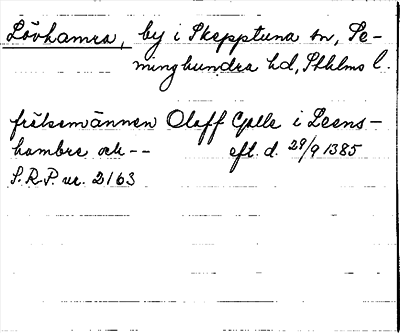 Lövhamra, by i Skepptuna sn, Se-
minghundra hd, Sthlms l.
frälsemännen Olaff Gslle i Leens-
hambre och -- eft. d. 29/9 1385
S.R.P. nr. 2163